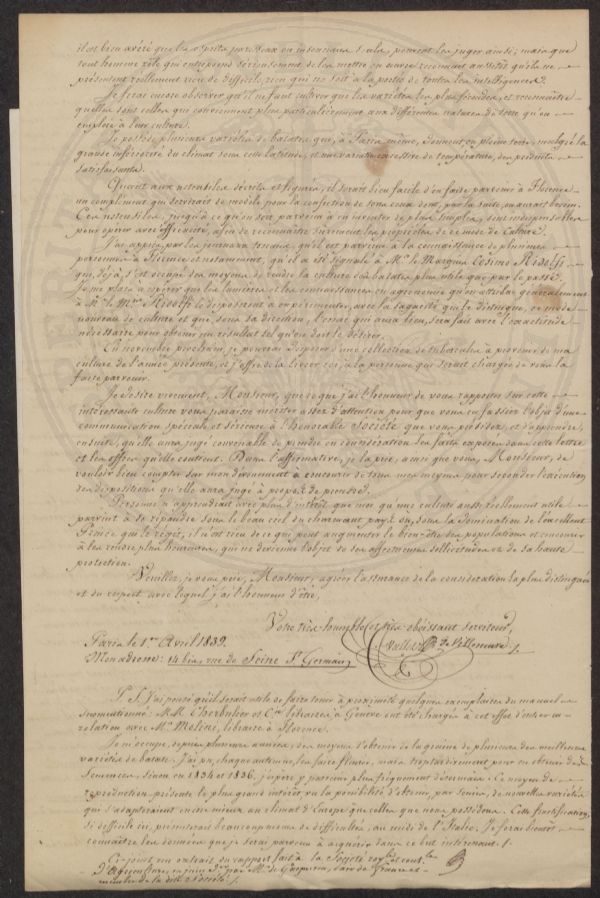 il est bien avéré que les esprits paresseux ou insoucians seuls, peuvent les juger ainsi; mais que
tout homme zélé qui entreprend sérieusement de les mettre en œuvre reconnait aussitôt qu'ils ne
présentent réellement rien de difficile, rien qui ne soit à la portée de toutes les intelligences.
Je ferai encore observer qu'il ne faut cultiver que les variétés les plus fécondes, et reconnaître
quelles sont celles qui conviennent plus particulièrement aux différentes natures de terre qu'on
emploie à leur culture.
Je possède plusieurs variétés de batates qui, à Paris même, donnent, en pleine terre, malgré la
grande infériorité du climat sous cette latitude, et ses variations de température, des produits
satisfaisants.
Quant aux ustensiles décrits et figurés, il serait bien facile d'en faire parvenir à Florence
un complément qui servirait de modèle pour la confection de tous ceux dont, par la suite, on aurait besoin.
Ces ustensiles, jusqu'à ce qu'on soit parvenu à en inventer de plus simples, sont indispensables
pour opérer avec efficacité, afin de reconnaître surement les propriétés de ce mode de culture.
J'ai appris par les journaux toscans, qu'il est parvenu à la connaissance de plusieurs
personnes à Florence et notamment, qu'il a été signalé à Mr. le Marquis Cosimo Ridolfi
qui, déjà, s'est occupé des moyens de rendre la culture des batates plus utile que par le passé.
Je me plais à espérer que les lumières et les connaissances en agronomie qu'on attribue généralement
à Mr. le Mis. Ridolfi le disposeront à expérimenter, avec la sagacité qui le distingue, ce mode
nouveau de culture et que, sous sa direction, l'essai qui aura lieu, sera fait avec l'exactitude
nécessaire pour obtenir un résultat tel qu'on doit le désirer.
En novembre prochain, je pourrai disposer d'une collection de tubercules à provenir de ma
culture de l'année présente, et j'offre de la livrer ici, à la personne qui serait chargée de vous la
faire parvenir.
Je désire vivement, Monsieur, que ce que j'ai l'honneur de vous rapporter sur cette
intéressante culture vous paraisse mériter assez d'attention pour que vous en fassiez l'objet d'une
communication spéciale et sérieuse à l'honorable Société que vous présidez, et d'apprendre,
ensuite, qu'elle aura jugé convenable de prendre en considération les faits exposés dans cette lettre
et les offres qu'elle contient. Dans l'affirmative, je la prie, ainsi que vous, Monsieur, de
vouloir bien compter sur mon dévouement à concourir de tous mes moyens pour seconder l'exécution
des dispositions qu'elle aura jugé à propos de prendre.
Personne n'apprendrait avec plus d'intérêt que moi qu'une culture aussi réellement utile
parvint à se répandre sous le beau ciel du charmant pays où, sous la domination de l'excellent
Prince qui le régit, il n'est rien de ce qui peut augmenter le bien-être des populations et concourir
à les rendre plus heureuses, qui ne devienne l'objet de ses affectueuses sollicitudes et de sa haute
protection.
Veuillez, je vous prie, Monsieur, agréer l'assurance de la considération la plus distinguée
et du respect avec lequel j'ai l'honneur d'être,
Votre très humble et très obéissant serviteur,
Vallet de Villeneuve
Paris le 1er Avril 1839.
Mon adresse: 14 bis, rue de Seine St. Germain,
P.S. J'ai pensé qu'il serait utile de faire tenir à proximité quelques exemplaires du manuel
susmentionné: MM. Cherbuliez et Cie. libraires à Genève ont été chargés à cet effet d'entrer en
relation avec Mr. Molini, libraire à Florence.
Je m'occupe, depuis plusieurs années, des moyens d'obtenir de la graine de plusieurs des meilleures
variétés de batate. J'ai pu, chaque automne, les faire fleurir, mais trop tardivement pour en obtenir des
semences, sinon en 1834 et 1836, j'espère y parvenir plus fréquemment désormais. Ce moyen de
reproduction présente le plus grand intérêt vu la possibilité d'obtenir, par semis, de nouvelles variétés
qui s'adapteraient encore mieux au climat d'Europe que celles que nous possédons. Cette fructification,
si difficile ici, présenterait beaucoup moins de difficultés, au midi de l'Italie. Je ferai bientôt
connaître les données que je serai parvenu à acquérir dans ce but intéressant.
Ci-joint un extrait du rapport fait à la Société royle. et centle.
d'Agriculture, en juin par Mr. de Gasparin, pair de France et
membre de la dite Société.